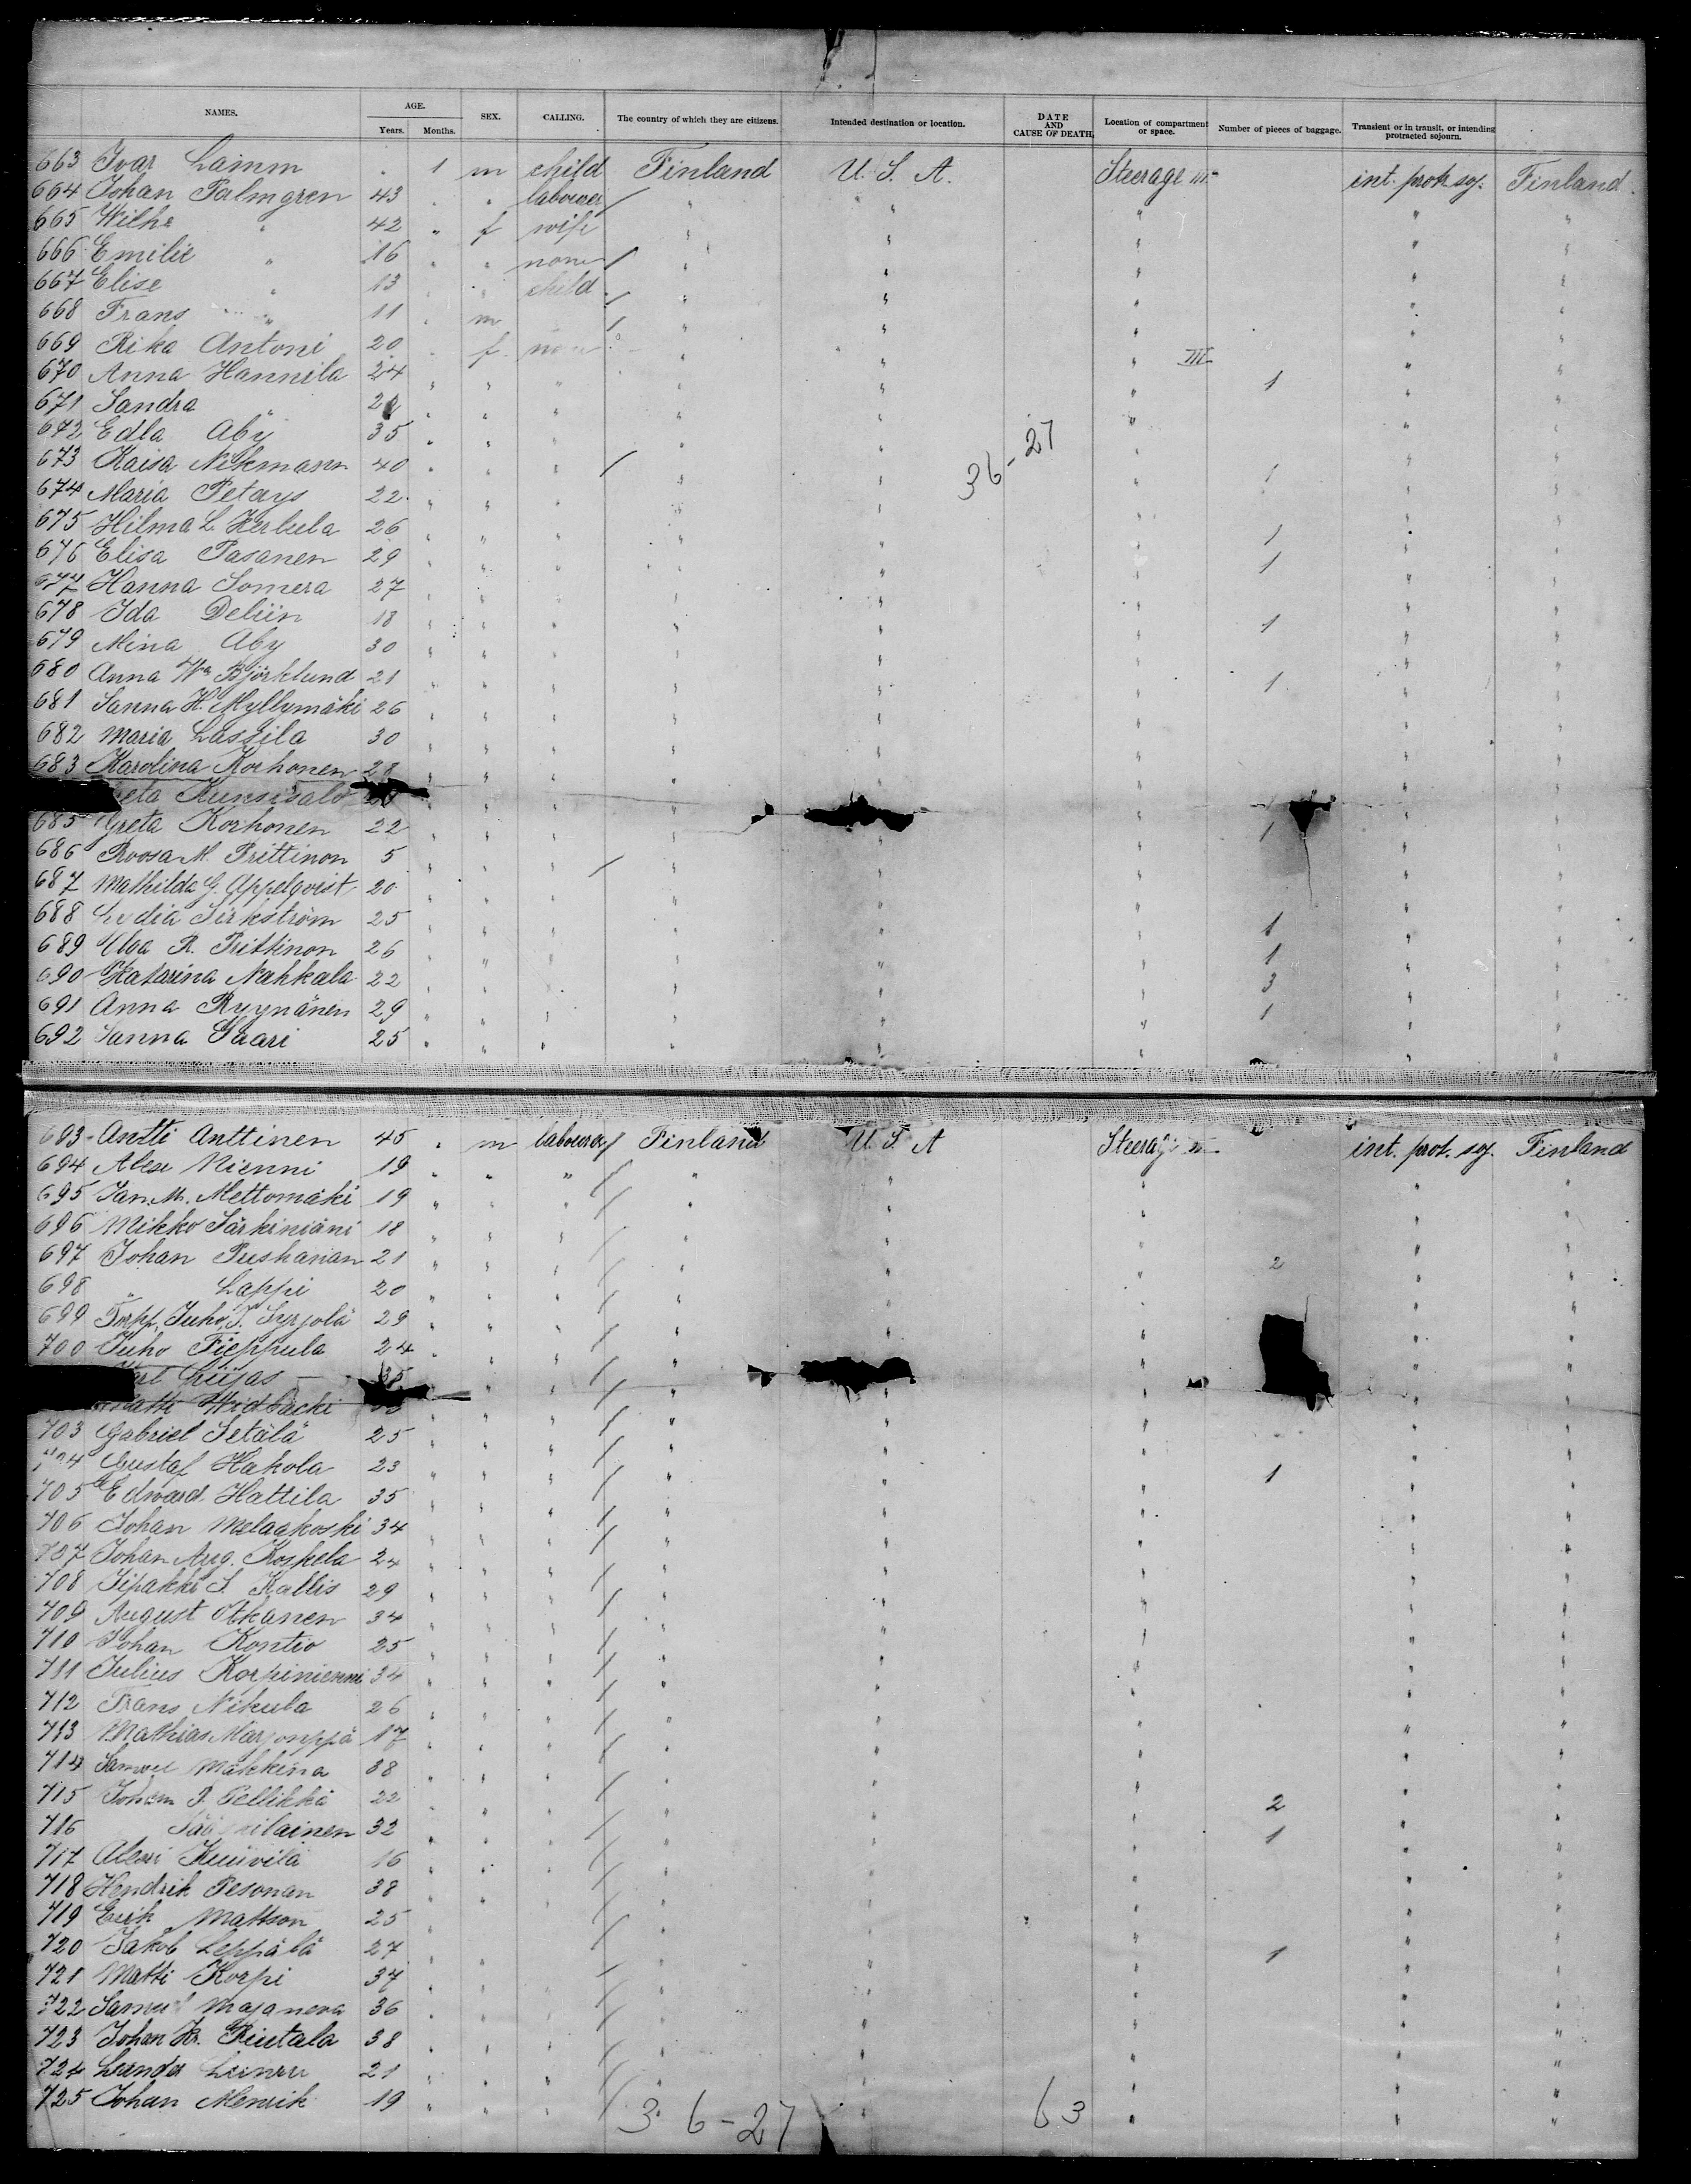 NAMES. AGE. Years. Months. SEX. CALLING. The country of which they are citizens. Intended destination or location. DATE AND CAUSE OF DEATH. Location of compartment or space. Number of pieces of baggage. Transient or in transit, or intending protracted sojourn.
663 Ivar Lamm . 1 m child Finland U. S. A. Steerage III int. prot. soj. Finland
664 Johan Palmgren 43 " " labourer / " " " " "
665 " 42 " f wife " " " " "
666 Emilie " 16 " " none / " " " " "
667 Elise " 13 " " child / " " " " "
668 Frans " 11 " m / " " " " "
669 Rika Antoni 20 " f none " " " III " "
670 Anna Hannila 24 " " " " " " 1 " "
671 Sandra " " " " " " " " "
672 Edla Aby 35 " " " " " " " "
673 Kaisa Nikmann 40 " " " / " " 36-27 " 1 " "
674 Maria Petays 22 " " " " " " " "
675 Hilma L. 26 " " " " " " 1 " "
676 Elisa Pasanen 29 " " " " " " 1 " "
677 Hanna Somera 27 " " " " " " " "
678 Ida 18 " " " " " " 1 " "
679 Mina Aby 30 " " " " " " " "
680 Anna Björklund 21 " " " " " " 1 " "
681 Sanna H. Myllymäki 26 " " " " " " " "
682 Maria Lassila 30 " " " " " " " "
683 Karolina Korhonen 28 " " " " " " " "
" " " " " " " "
685 Greta Korhonen 22 " " " " " " 1 " "
686 Roosa M. Prittinon 5 " " " / " " " " "
687 Mathilda G. Appelqvist 20 " " " " " " " "
688 25 " " " " " " 1 " "
689 R. Prittinon 26 " " " " " " 1 " "
690 Katarina Nahkala 22 " " " " " " 3 " "
691 Anna Ryynänen 29 " " " " " " 1 " "
692 Sanna Saari 25 " " " " " " " "
693 Antti Anttinen 45 " m labourer / Finland U. S. A Steerage int. prot. soj. Finland
694 Niemi 19 " " " / " " " " "
695 Jan. M. Mettomäki 19 " " " / " " " " "
696 Mikko 18 " " " / " " " " "
697 Johan 21 " " " / " " " 2 " "
698 " Lappi 20 " " " / " " " " "
699 Juho 29 " " " / " " " " "
700 Juho 24 " " " / " " " " "
Liijas 35 " " " / " " " " "
Matti " " " / " " " " "
703 Gabriel Setälä 25 " " " / " " " " "
Gustaf Hakola 23 " " " / " " " 1 " "
705 Edward Hattila 35 " " " / " " " " "
706 Johan Melaakoski 34 " " " / " " " " "
707 Johan Aug. Koskela 24 " " " / " " " " "
708 S. Kallis 29 " " " / " " " " "
709 August 34 " " " / " " " " "
710 Johan Kontio 25 " " " / " " " " "
711 Julius Korpiniemi 34 " " " / " " " " "
712 Frans Nikula 26 " " " / " " " " "
713 Mathias 17 " " " / " " " " "
714 Samuel 38 " " " / " " " " "
715 Johan P. Pellikka 22 " " " / " " " 2 " "
716 32 " " " / " " " 1 " "
717 Kuivila 16 " " " / " " " " "
718 Hendrik Pesonan 38 " " " / " " " " "
719 Erik Mattson 25 " " " / " " " " "
720 Jakob Leppälä 27 " " " / " " " 1 " "
721 Matti Korpi 37 " " " / " " " " "
722 Samuel Majaneva 36 " " " / " " " " "
723 Johan Rintala 38 " " " / " " " " "
724 21 " " " / " " " " "
725 Johan 19 " " " / " " " " "
36-27 63